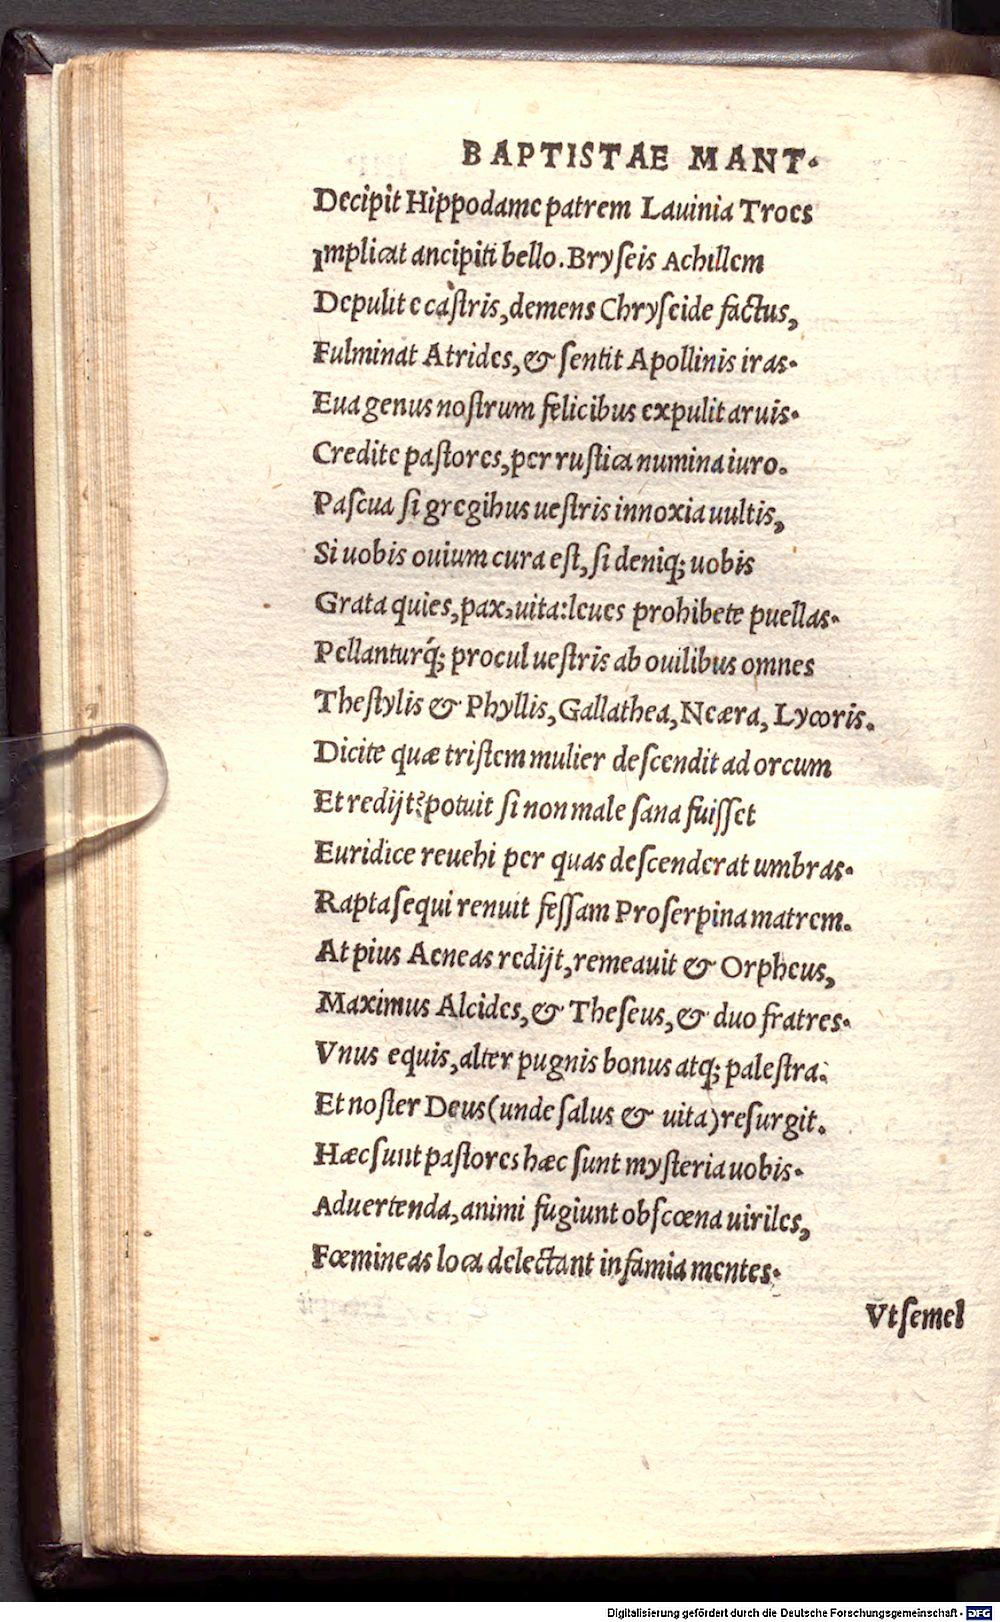 BAPTISTAE MANT.
Decipit Hippodame patrem Lauinia Troes
Implicat ancipiti bello. Bryseis Achillem
Depulit e castris, demens Chryseide factus,
Fulminat Atrides, & sentit Apollinis iras.
Eua genus nostrum felicibus expulit aruis.
Credite pastores, per rustica numina iuro.
Pascua si gregibus uestris innoxia uultis,
Si uobis ouium cura est, si deniq; uobis
Grata quies, pax, uita: leues prohibete puellas.
Pellanturq́; procul uestris ab ouilibus omnes
Thestylis & Phyllis, Gallathea, Neæra, Lycoris.
Dicite quæ tristem mulier descendit ad orcum
Et redijt? potuit si non male sana fuisset
Euridice reuehi per quas descenderat umbras.
Rapta sequi renuit fessam Proserpina matrem.
At pius Aeneas redijt, remeauit & Orpheus,
Maximus Alcides, & Theseus, & duo fratres.
Vnus equis, alter pugnis bonus atq; palestra.
Et noster Deus (unde salus & uita) resurgit.
Hæc sunt pastores hæc sunt mysteria uobis.
Aduertenda, animi fugiunt obscœna uiriles,
Fœmineas loca delectant infamia mentes.
Vt semel
Digitalisierung gefördert durch die Deutsche Forschungsgemeinschaft - DFG